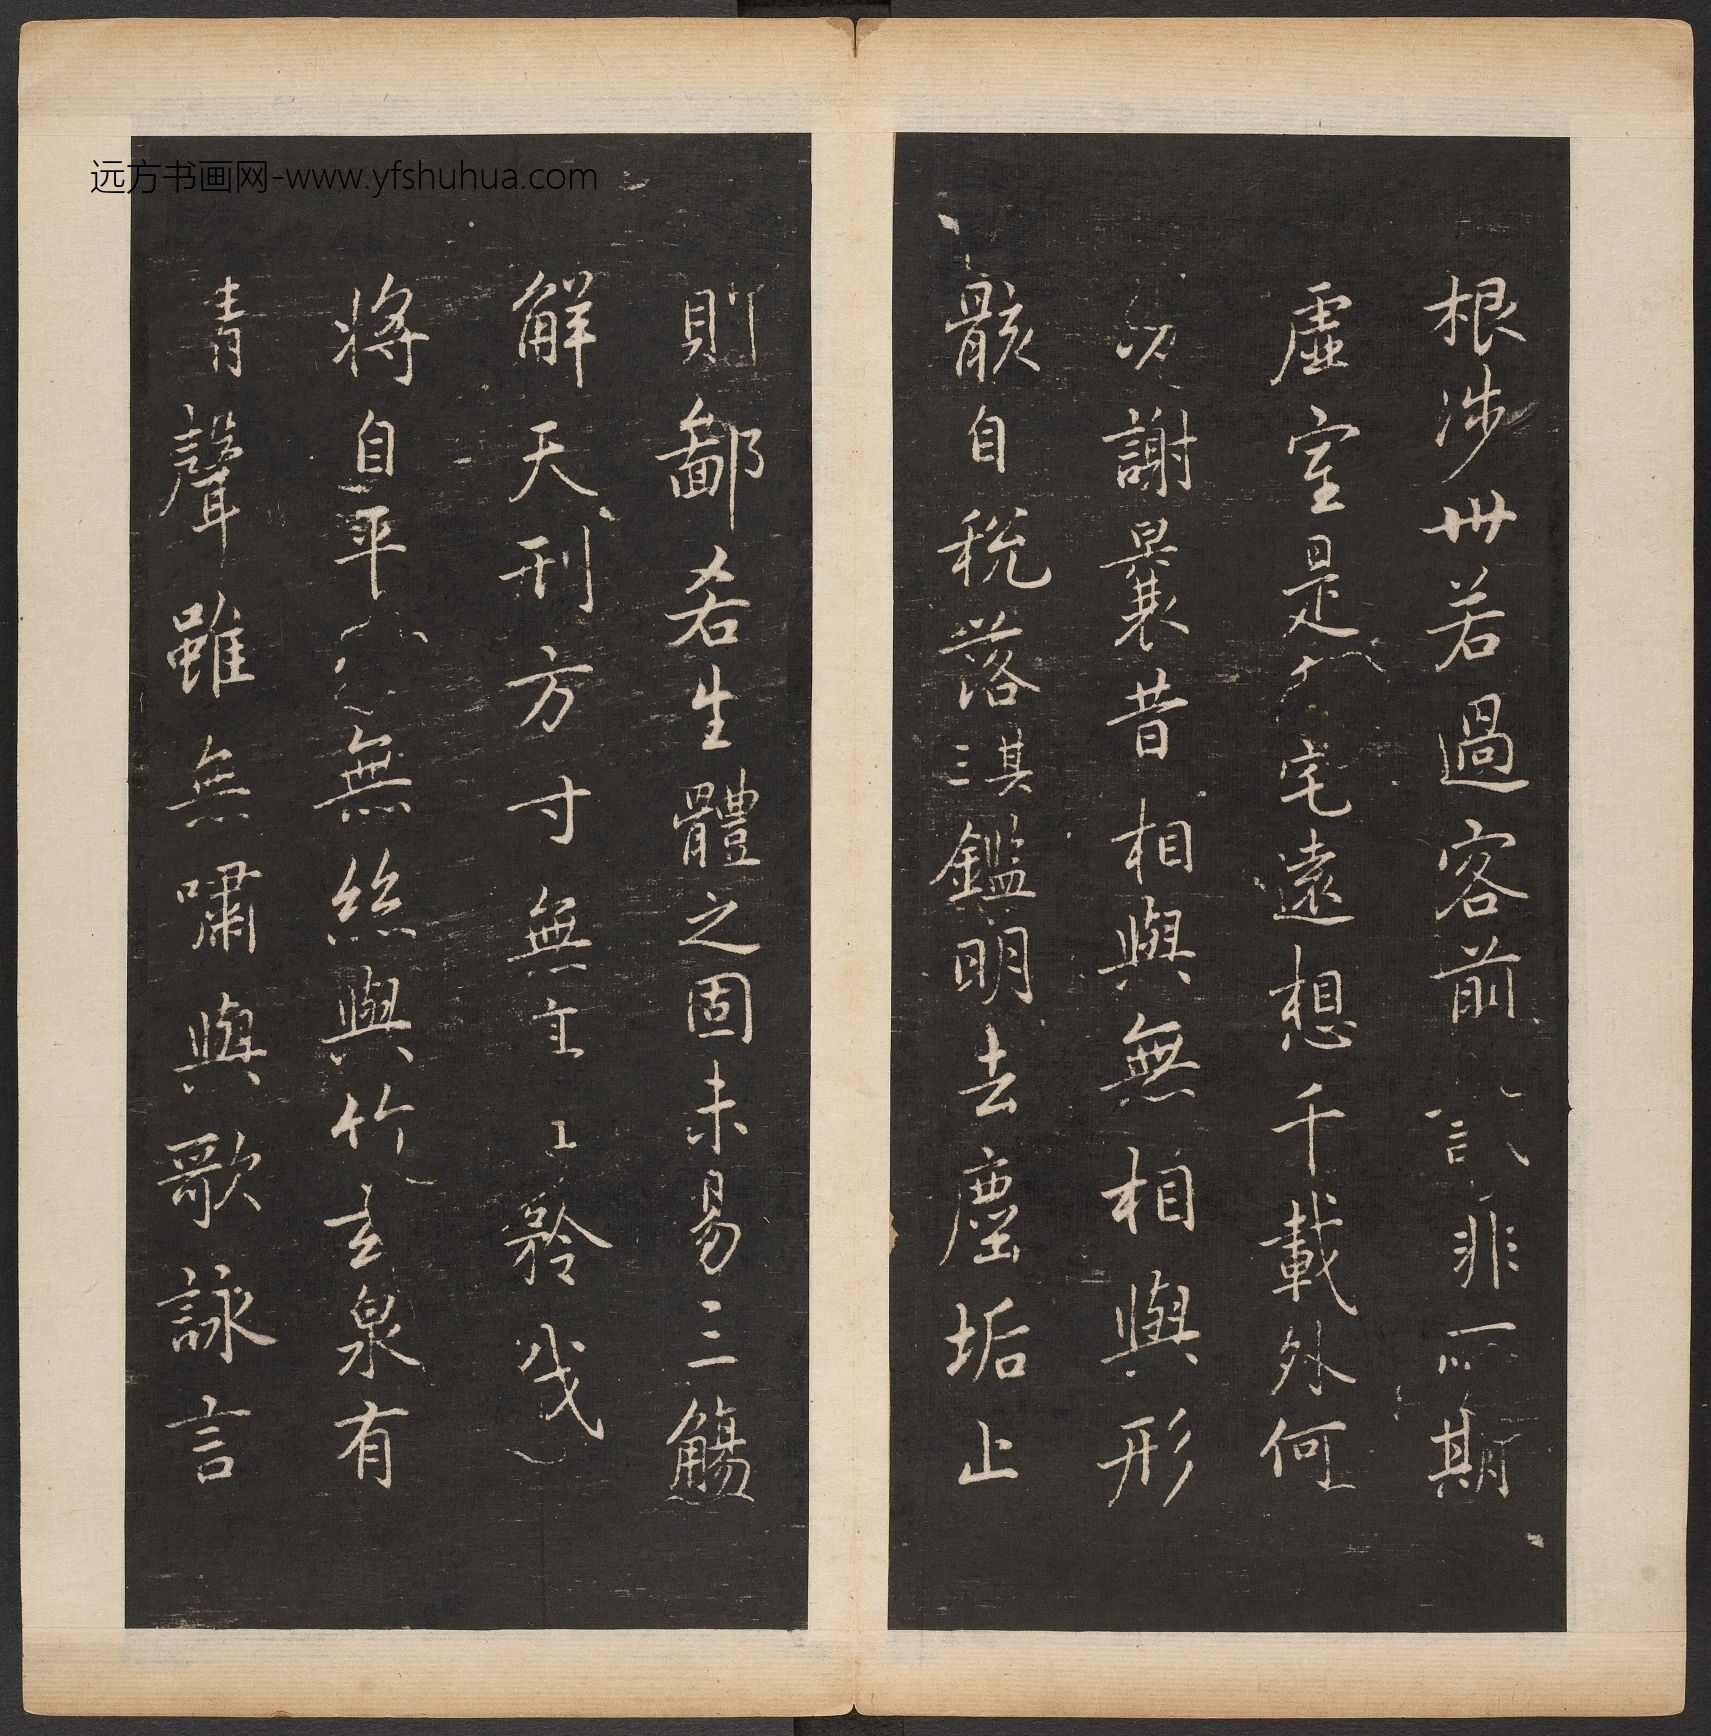 远方书画网-www.yfshuhua.com
根涉世若過客前識非所期
虛室是宅遠想千載外何
必謝曩昔相與無相與形
骸自稅落其三鑑明去塵垢止
則鄙吝生體之固未易三觴
解天刑方寸無主矜伐
將自平無絲與竹玄泉有
清聲雖無嘯與歌詠言